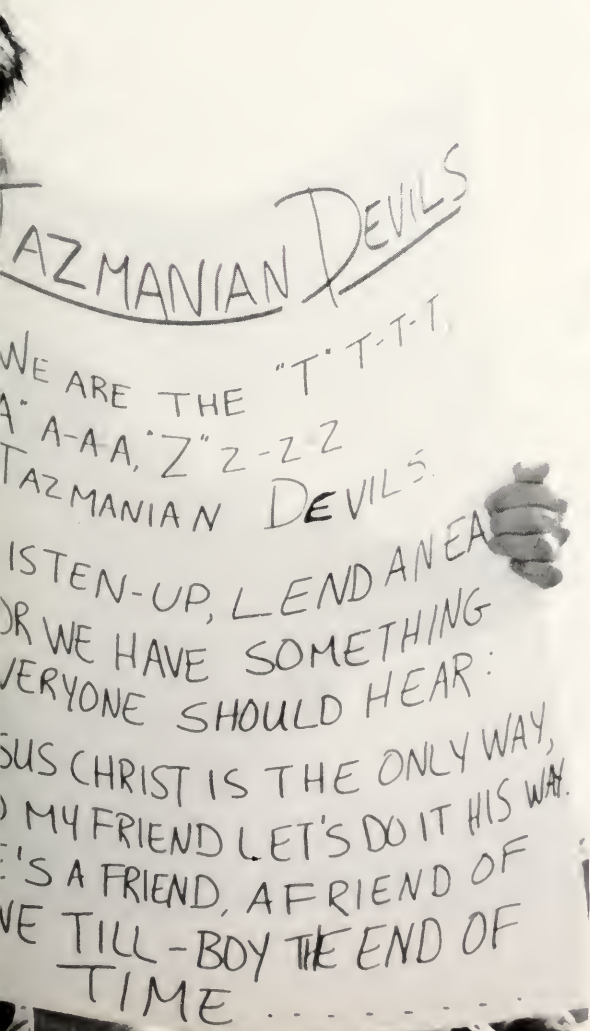 TAZMANIAN DEVILS
WE ARE THE "T" T-T-T,
A" A-A-A, "Z" Z-Z Z
TAZMANIAN DEVILS.
ISTEN-UP, LEND AN EA
OR WE HAVE SOMETHING
VERYONE SHOULD HEAR:
SUS CHRIST IS THE ONLY WAY,
MY FRIEND LET'S DO IT HIS WAY.
E'S A FRIEND, A FRIEND OF
NE TILL-BOY THE END OF
TIME........